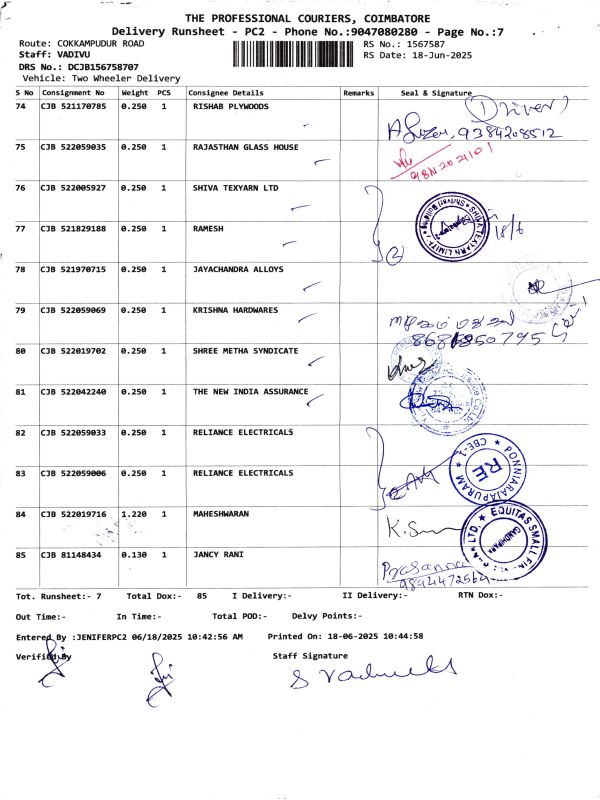 THE PROFESSIONAL COURIERS, COIMBATORE
Delivery Runsheet - PC2 - Phone No.:9047080280 - Page No.:7
Route: COKKAMPUDUR ROAD RS No.: 1567587
Staff: VADIVU RS Date: 18-Jun-2025
DRS No.: DCJB156758707
Vehicle: Two Wheeler Delivery
S No Consignment No Weight PCS Consignee Details Remarks Seal & Signature
74 CJB 521170785 0.250 1 RISHAB PLYWOODS (Driver)
9384208512
75 CJB 522059035 0.250 1 RAJASTHAN GLASS HOUSE
76 CJB 522005927 0.250 1 SHIVA TEXYARN LTD
SHIVA TEXYARN LIMITED
18/6
77 CJB 521829188 0.250 1 RAMESH
2
78 CJB 521970715 0.250 1 JAYACHANDRA ALLOYS
79 CJB 522059069 0.250 1 KRISHNA HARDWARES
80 CJB 522019702 0.250 1 SHREE METHA SYNDICATE
81 CJB 522042240 0.250 1 THE NEW INDIA ASSURANCE
82 CJB 522059033 0.250 1 RELIANCE ELECTRICALS
PONNAIRAJAPURAM ★ CBE-1 ★
RE
83 CJB 522059006 0.250 1 RELIANCE ELECTRICALS
84 CJB 522019716 1.220 1 MAHESHWARAN
★ EQUITAS SMALL FIN
LTD.
GANDHIPARK
85 CJB 81148434 0.130 1 JANCY RANI Prasanna
9894472564
Tot. Runsheet:- 7 Total Dox:- 85 I Delivery:- II Delivery:- RTN Dox:-
Out Time:- In Time:- Total POD:- Delvy Points:-
Entered By :JENIFERPC2 06/18/2025 10:42:56 AM Printed On: 18-06-2025 10:44:58
Verified By Staff Signature